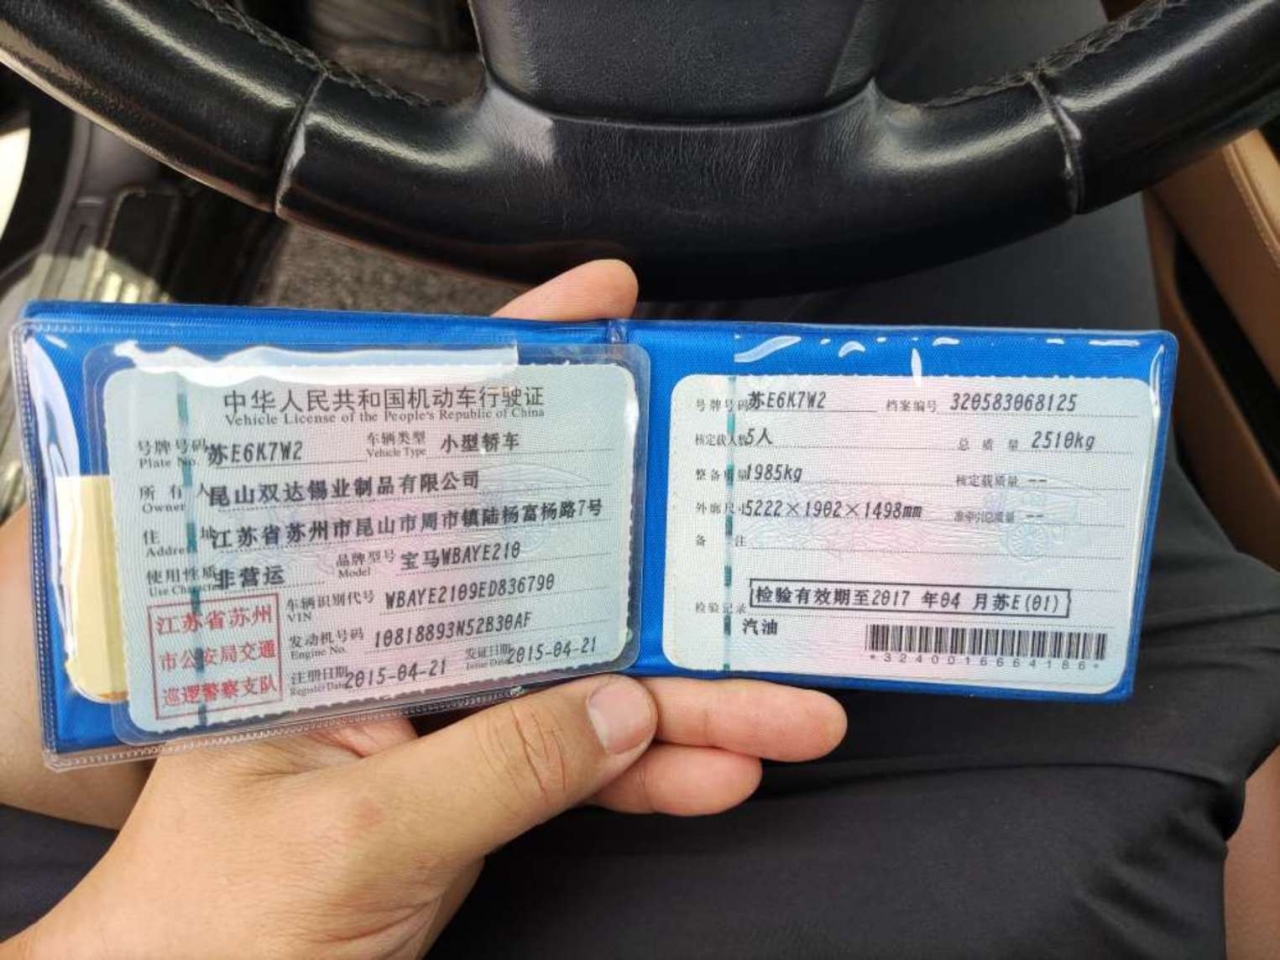 中华人民共和国机动车行驶证
Vehicle License of the People's Republic of China
号牌号码 苏E6K7W2 车辆类型 小型轿车
Plate No. Vehicle Type
所有人 昆山双达锡业制品有限公司
Owner
住址 江苏省苏州市昆山市周市镇陆杨富杨路7号
Address
使用性质 非营运 品牌型号 宝马WBAYE210
Use Character Model
江苏省苏州
市公安局交通
巡逻警察支队
车辆识别代号 WBAYE2109ED836790
VIN
发动机号码 10818893N52B30AF
Engine No.
注册日期 2015-04-21 发证日期 2015-04-21
Register Date Issue Date
号牌号码 苏E6K7W2 档案编号 320583068125
核定载人数 5人 总质量 2510kg
整备质量 1985kg 核定载质量 --
外廓尺寸 5222×1902×1498mm 准牵引总质量 --
备注
检验记录 检验有效期至2017 年04 月苏E(01)
汽油
*3240016664186*